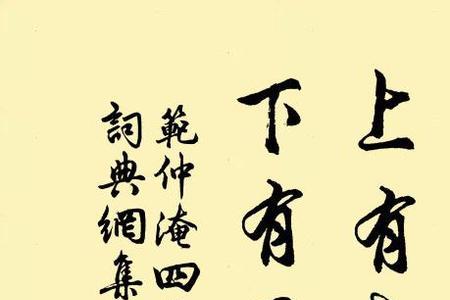 上有
下有
範仲淹四
詞典網集